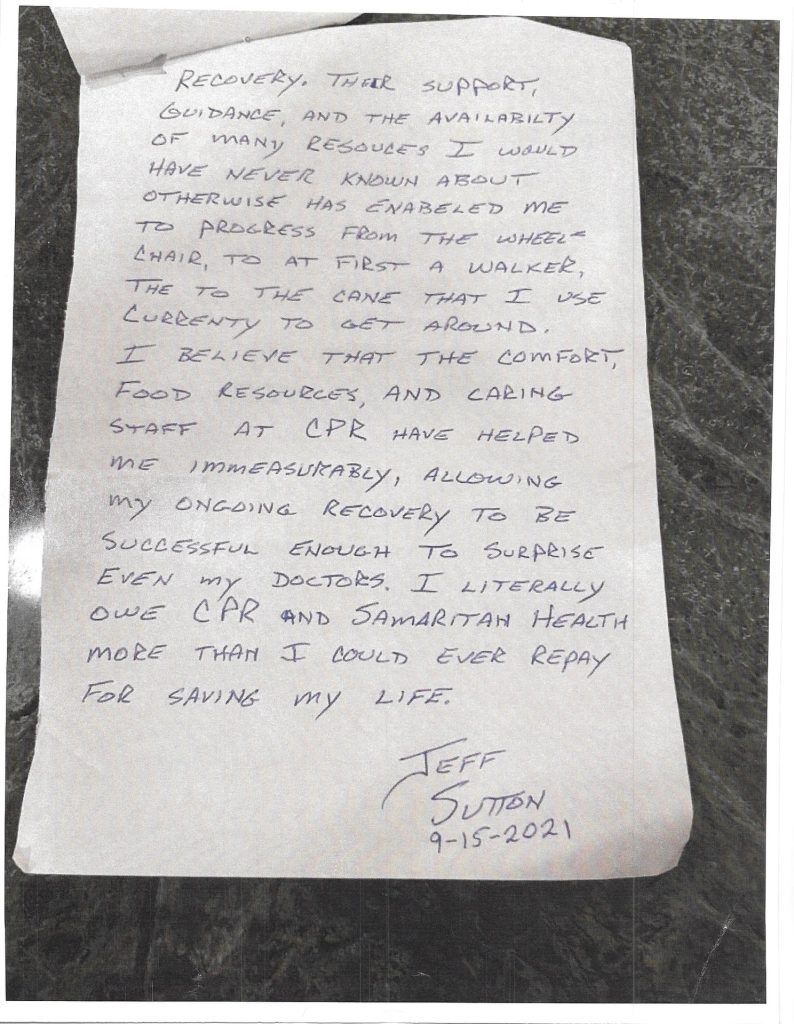 RECOVERY. THEIR SUPPORT,
GUIDANCE, AND THE AVAILABILTY
OF MANY RESOUCES I WOULD
HAVE NEVER KNOWN ABOUT
OTHERWISE HAS ENABELED ME
TO PROGRESS FROM THE WHEEL-
CHAIR, TO AT FIRST A WALKER,
THE TO THE CANE THAT I USE
CURRENTY TO GET AROUND.
I BELIEVE THAT THE COMFORT,
FOOD RESOURCES, AND CARING
STAFF AT CPR HAVE HELPED
ME IMMEASURABLY, ALLOWING
MY ONGOING RECOVERY TO BE
SUCCESSFUL ENOUGH TO SURPRISE
EVEN MY DOCTORS. I LITERALLY
OWE CPR AND SAMARITAN HEALTH
MORE THAN I COULD EVER REPAY
FOR SAVING MY LIFE.
JEFF
SUTTON
9-15-2021